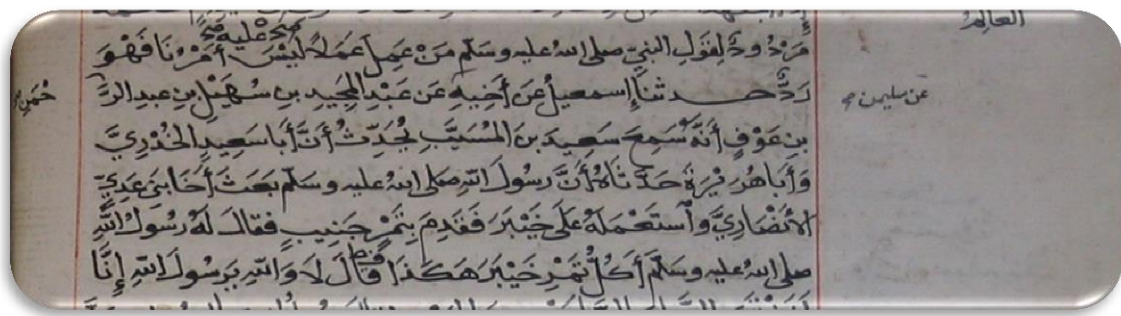 العالم
عليه صح
مَرْدُودٌ لِقَوْلِ النبيِّ صلى الله عليه وسلم مَنْ عَمِلَ عَمَلًا لَيْسَ أَمْرُنَا فَهْوَ
رَدٌّ حدثنا إسمعيلُ عَنْ أَخِيهِ عَنْ عَبْدِ المَجِيدِ بنِ سُهَيْلِ بنِ عبدِ الرَّ حْمَنِ صح
عن سليمن صح
بنِ عَوْفٍ أَنَّهُ سَمِعَ سَعِيدَ بنَ المُسَيَّبِ يُحَدِّثُ أَنَّ أَبَا سَعِيدٍ الخُدْرِيَّ
وَأَبَا هُرَيْرَةَ حَدَّثَاهُ أَنَّ رسُولَ اللهِ صلى الله عليه وسلم بَعَثَ أَخَا بَنِي عَدِيٍّ
الأَنْصَارِيَّ وَٱسْتَعْمَلَهُ عَلَى خَيْبَرَ فَقَدِمَ بِتَمْرٍ جَنِيبٍ فقالَ لَهُ رسُولُ اللهِ
صلى الله عليه وسلم أَكُلُّ تَمْرِ خَيْبَرَ هَكَذَا قَالَ لَا وَاللهِ يَرسُولَ اللهِ إِنَّا